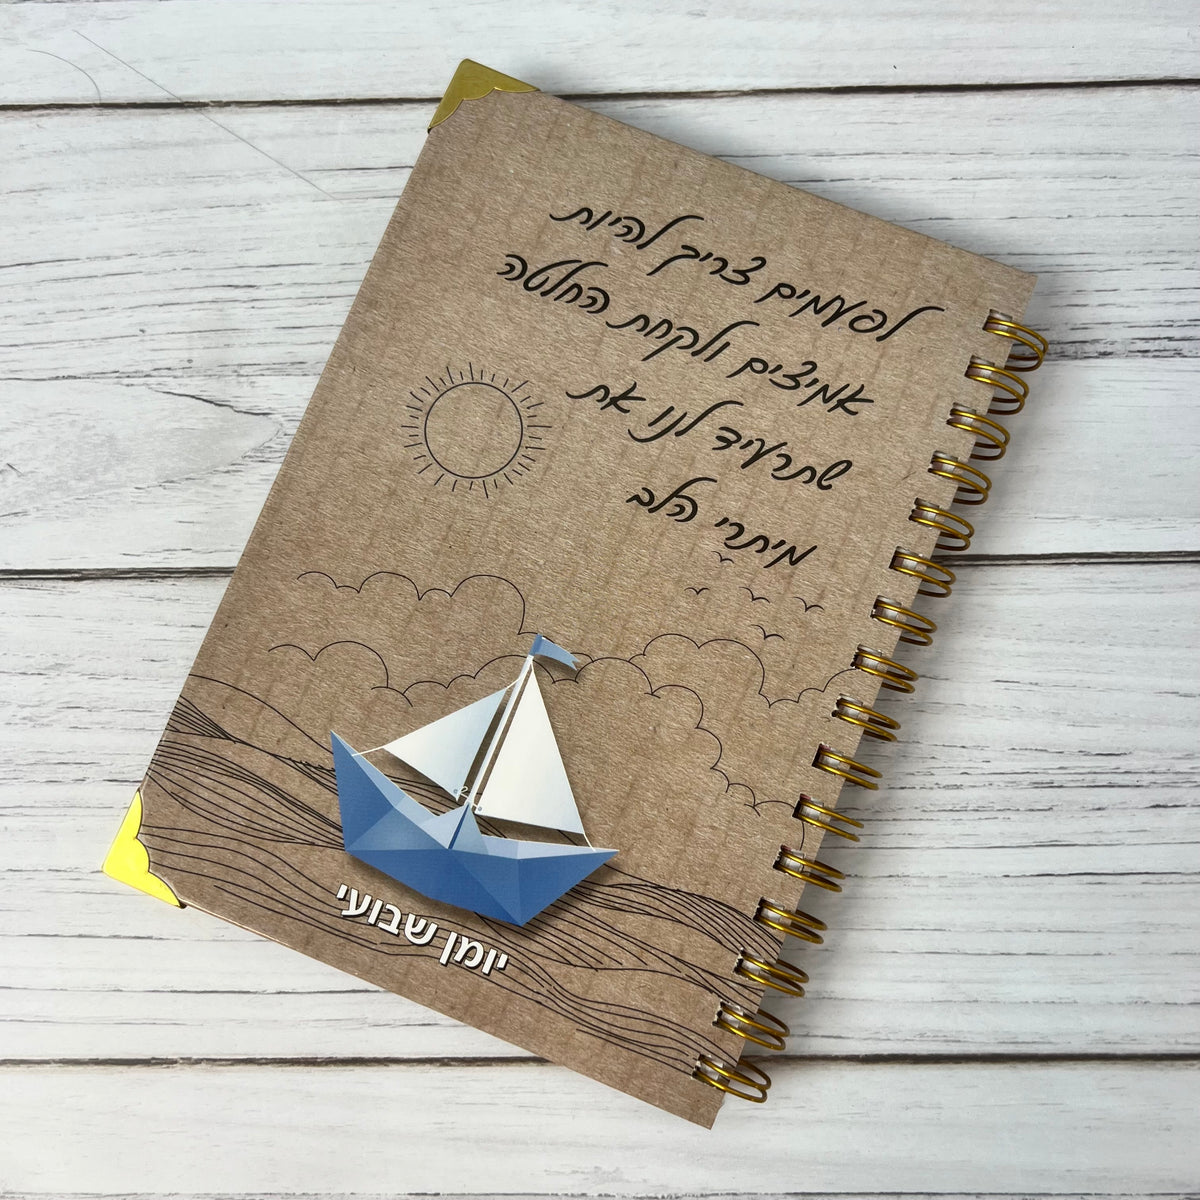 לפעמים צריך להיות
אמיצים ולקחת החלטה
שתרעיד לנו את
מיתרי הלב
יומן שבועי